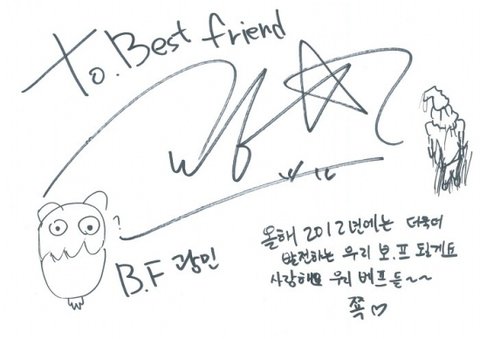 To. Best friend
B.F 광민
올해 2012년에는 더욱더
발전하는 우리 보.프 될게요
사랑해요 우리 베프들~~
쪽♡